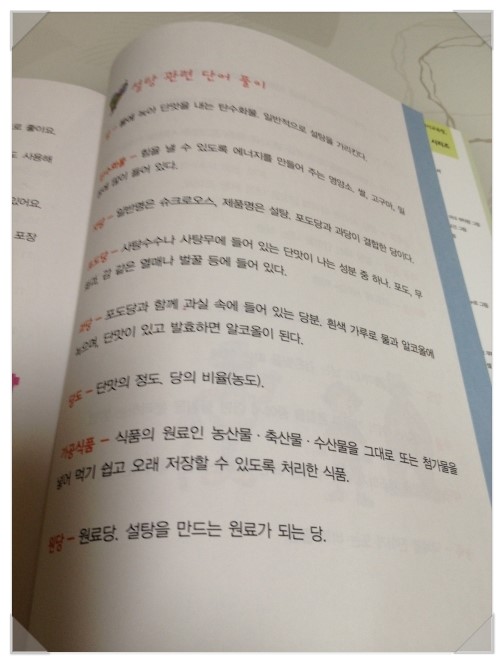 로 좋아요.
도 사용해
있어요.
포장
설탕 관련 단어 풀이
당 – 물에 녹아 단맛을 내는 탄수화물. 일반적으로 설탕을 가리킨다.
탄수화물 – 힘을 낼 수 있도록 에너지를 만들어 주는 영양소. 쌀, 고구마, 밀
등에 많이 들어 있다.
자당 – 일반명은 슈크로오스, 제품명은 설탕. 포도당과 과당이 결합한 당이다.
포도당 – 사탕수수나 사탕무에 들어 있는 단맛이 나는 성분 중 하나. 포도, 무
화과, 감 같은 열매나 벌꿀 등에 들어 있다.
과당 – 포도당과 함께 과실 속에 들어 있는 당분. 흰색 가루로 물과 알코올에
녹으며, 단맛이 있고 발효하면 알코올이 된다.
당도 – 단맛의 정도. 당의 비율(농도).
가공식품 – 식품의 원료인 농산물 · 축산물 · 수산물을 그대로 또는 첨가물을
넣어 먹기 쉽고 오래 저장할 수 있도록 처리한 식품.
원당 – 원료당. 설탕을 만드는 원료가 되는 당.
시리즈